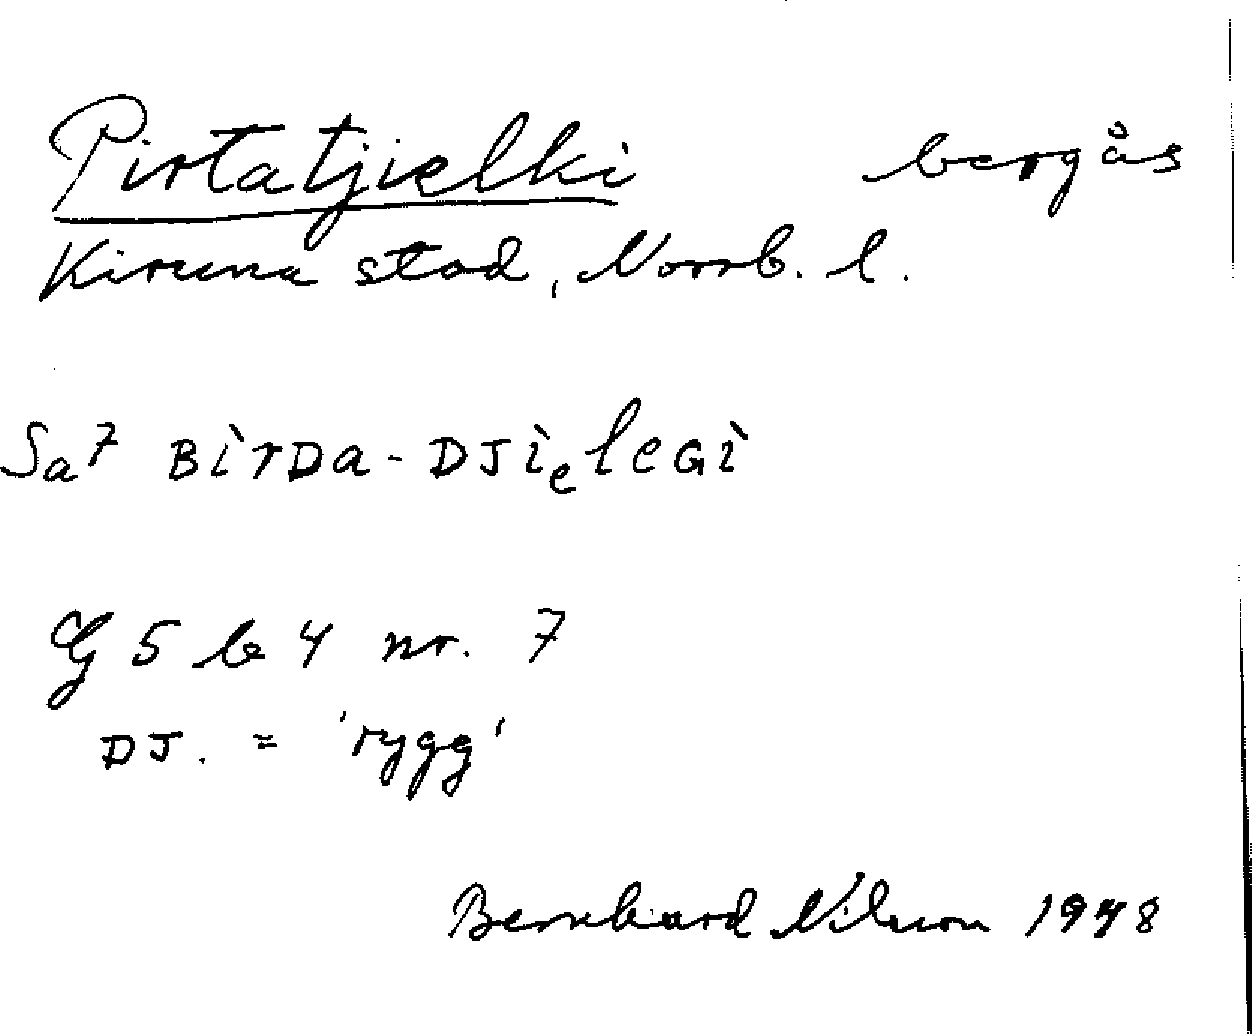 Pirtatjielki bergås
Kiruna stad, Norrb. l.
Sa 7 BìrDa-DJìeleGì
G 5 b 4 nr. 7
DJ. = 'rygg'
Bernhard Nilsson 1948